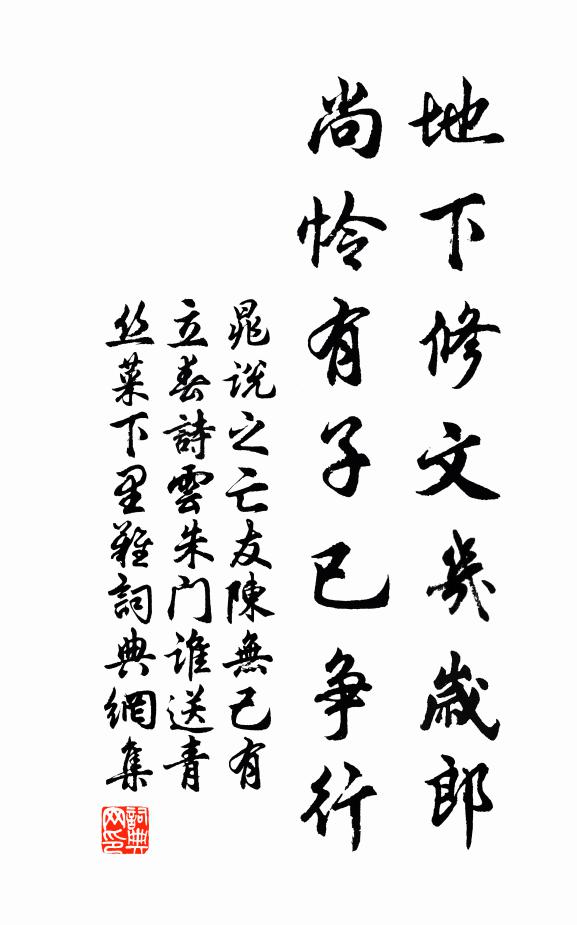 地下修文幾歲郎
尚怜有子已争行
晁說之亡友陳無己有
立春詩雲朱门誰送青
丝菜下里難詞典網集
詞典
网印